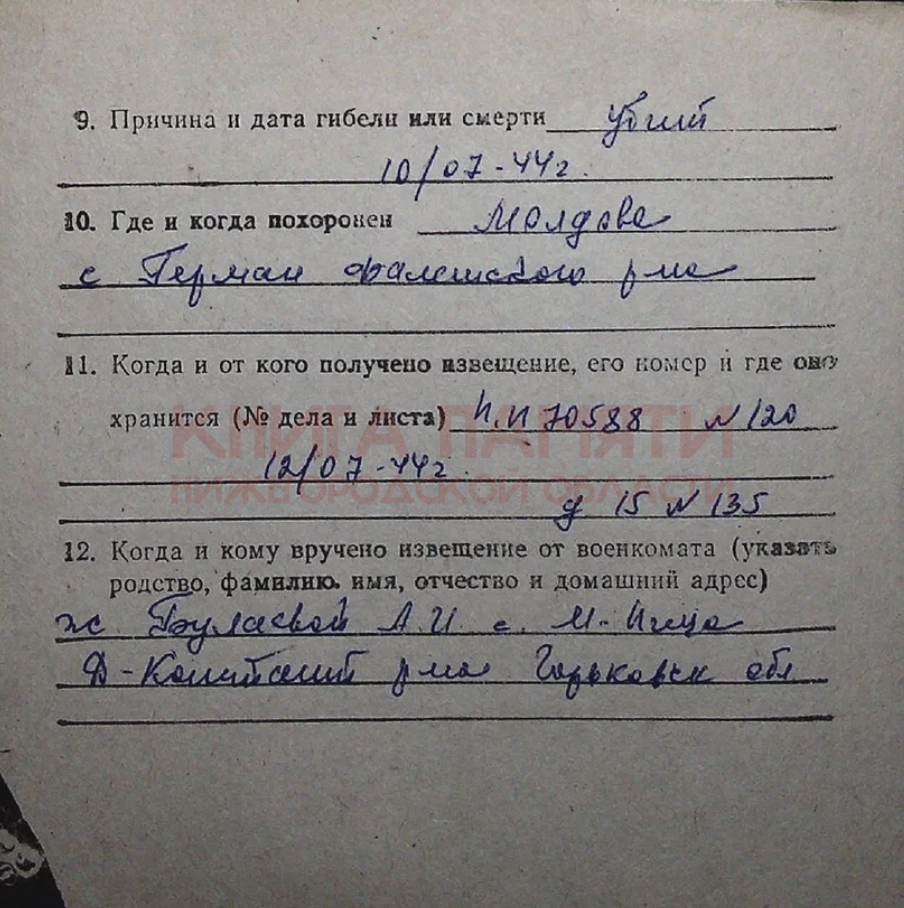 9. Причина и дата гибели или смерти убит
10/07-44г.
10. Где и когда похоронен Молдова
с Герман Фалешского р-на
11. Когда и от кого получено извещение, его номер и где оно
хранится (№ дела и листа) И.И 70588 № 120
КНИГА ПАМЯТИ
12/07-44г.
НИЖЕГОРОДСКОЙ ОБЛАСТИ
д 15 № 135
12. Когда и кому вручено извещение от военкомата (указать
родство, фамилию, имя, отчество и домашний адрес)
ж. Булаевой А.И с. М-
Д-Конст р-на Горьковск обл